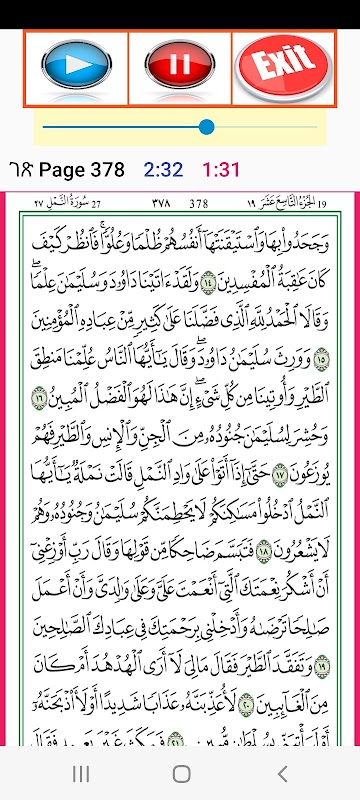 Exit
ገጽ Page 378 2:32 1:31
19 الجزء التاسع عشر ١٩ 378 ٣٧٨ 27 سورة النمل ٢٧
وَجَحَدُوا۟ بِهَا وَٱسْتَيْقَنَتْهَآ أَنفُسُهُمْ ظُلْمًا وَعُلُوًّا ۚ فَٱنظُرْ كَيْفَ
كَانَ عَٰقِبَةُ ٱلْمُفْسِدِينَ ١٤ وَلَقَدْ ءَاتَيْنَا دَاوُۥدَ وَسُلَيْمَٰنَ عِلْمًا ۖ
وَقَالَا ٱلْحَمْدُ لِلَّهِ ٱلَّذِى فَضَّلَنَا عَلَىٰ كَثِيرٍ مِّنْ عِبَادِهِ ٱلْمُؤْمِنِينَ
١٥ وَوَرِثَ سُلَيْمَٰنُ دَاوُۥدَ ۖ وَقَالَ يَٰٓأَيُّهَا ٱلنَّاسُ عُلِّمْنَا مَنطِقَ
ٱلطَّيْرِ وَأُوتِينَا مِن كُلِّ شَىْءٍ ۖ إِنَّ هَٰذَا لَهُوَ ٱلْفَضْلُ ٱلْمُبِينُ ١٦
وَحُشِرَ لِسُلَيْمَٰنَ جُنُودُهُۥ مِنَ ٱلْجِنِّ وَٱلْإِنسِ وَٱلطَّيْرِ فَهُمْ
يُوزَعُونَ ١٧ حَتَّىٰٓ إِذَآ أَتَوْا۟ عَلَىٰ وَادِ ٱلنَّمْلِ قَالَتْ نَمْلَةٌ يَٰٓأَيُّهَا
ٱلنَّمْلُ ٱدْخُلُوا۟ مَسَٰكِنَكُمْ لَا يَحْطِمَنَّكُمْ سُلَيْمَٰنُ وَجُنُودُهُۥ وَهُمْ
لَا يَشْعُرُونَ ١٨ فَتَبَسَّمَ ضَاحِكًا مِّن قَوْلِهَا وَقَالَ رَبِّ أَوْزِعْنِىٓ
أَنْ أَشْكُرَ نِعْمَتَكَ ٱلَّتِىٓ أَنْعَمْتَ عَلَىَّ وَعَلَىٰ وَٰلِدَىَّ وَأَنْ أَعْمَلَ
صَٰلِحًا تَرْضَىٰهُ وَأَدْخِلْنِى بِرَحْمَتِكَ فِى عِبَادِكَ ٱلصَّٰلِحِينَ
١٩ وَتَفَقَّدَ ٱلطَّيْرَ فَقَالَ مَالِىَ لَآ أَرَى ٱلْهُدْهُدَ أَمْ كَانَ
مِنَ ٱلْغَآئِبِينَ ٢٠ لَأُعَذِّبَنَّهُۥ عَذَابًا شَدِيدًا أَوْ لَأَا۟ذْبَحَنَّهُۥٓ
أَوْ لَيَأْتِيَنِّى بِسُلْطَٰنٍ مُّبِينٍ ٢١ فَمَكَثَ غَيْرَ بَعِيدٍ فَقَالَ